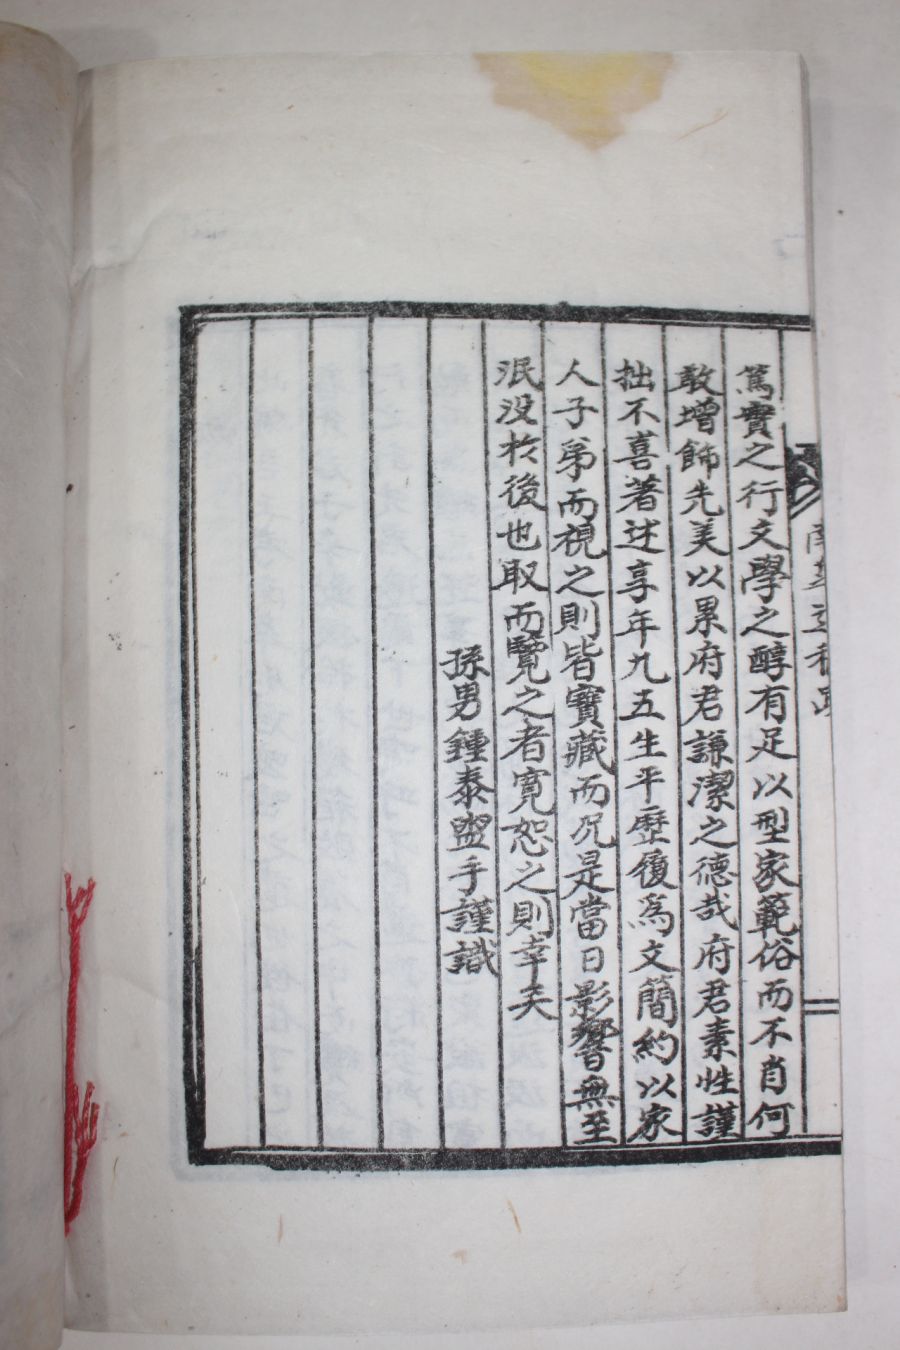 篤實之行文學之醇有足以型家範俗而不肖何
敢增飾先美以累府君謙潔之德哉府君素性謹
拙不喜著述享年九五生平歷履爲文簡約以家
人子弟而視之則皆寶藏而況是當日影響無至
泯没於後也取而覽之者寬恕之則幸矣
孫男鍾泰盥手謹識